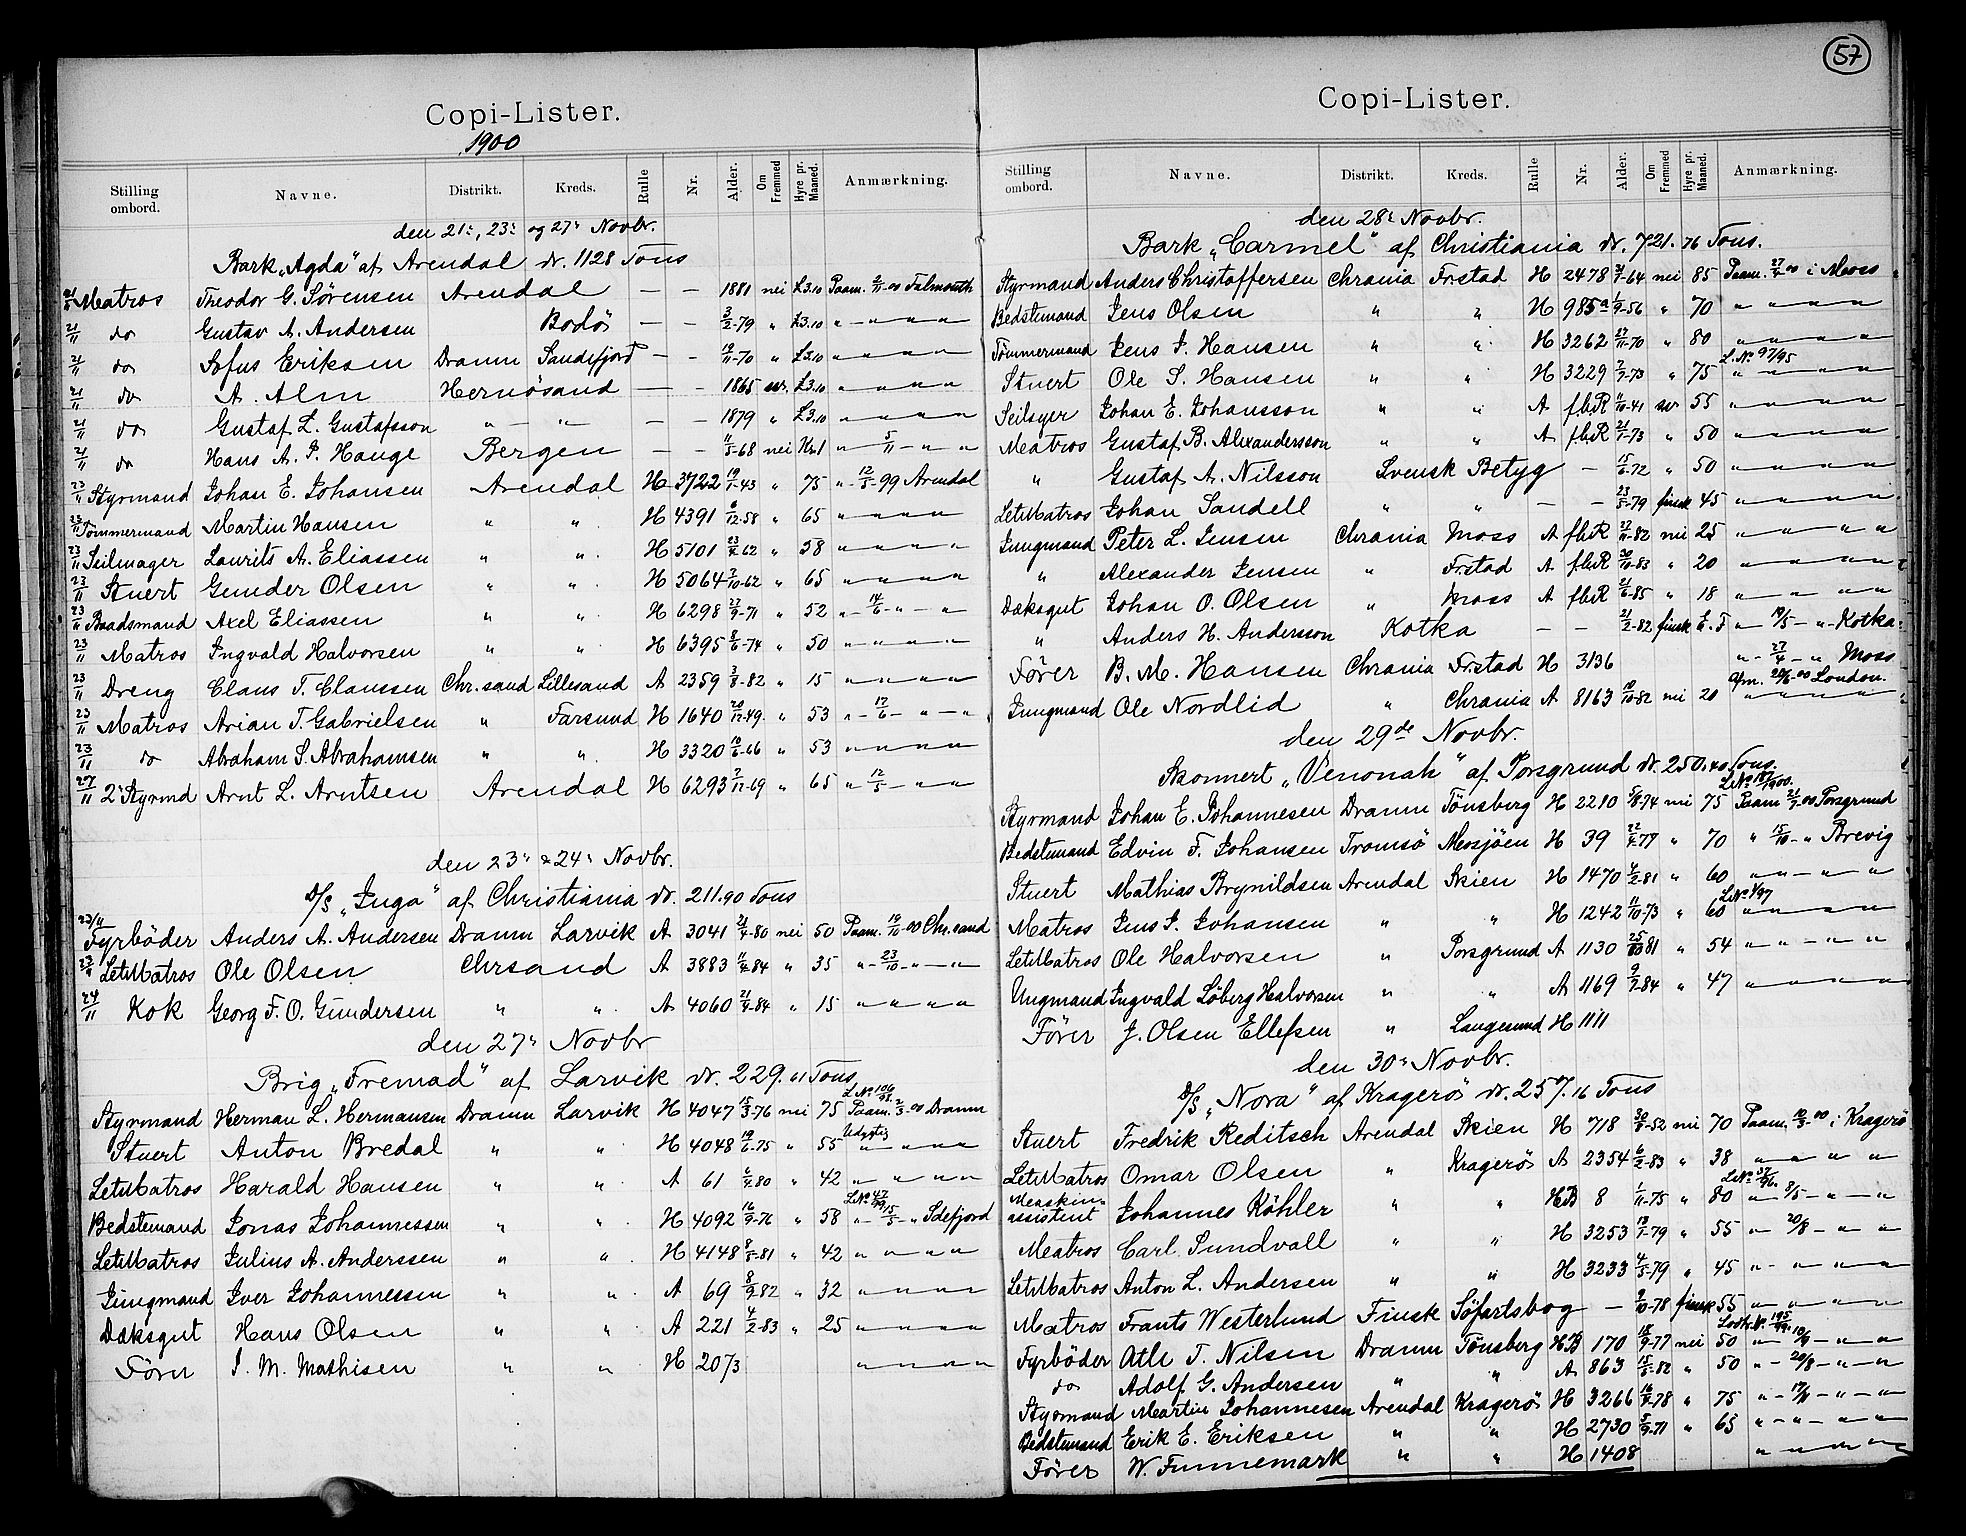 57
Copi-Lister.
1900
Stilling ombord. Navne. Distrikt. Kreds. Rulle Nr. Alder. Om Fremmed Hyre pr. Maaned. Anmærkning.
den 21:, 23: og 27: Novbr.
Bark „Agda" af Arendal dr. 1128 Tons
21/11 Matros Theodor G. Sørensen Arendal — — 1881 nei £3.10 Paam. 2/11-00 Falmouth
21/11 do Gustav A. Andersen Bodö — — 3/2-79 " £3.10 " — " — " — "
21/11 do Sofus Eriksen Dramn Sandefjord — — 19/11-70 " £3.10 " — " — " — "
21/11 do A. Alm Hernösand — — 1865 sv. £3.10 " — " — " — "
21/11 do Gustaf L. Gustafsson " — " — — — 1879 " £3.10 " — " — " — "
21/11 do Hans A. P. Hauge Bergen — — 11/5-68 nei " — 5/11 — " — "
23/11 Styrmand Johan E. Johansen Arendal H 3722 19/1-43 " 75 " - 12/5-99 Arendal
23/11 Tömmermand Martin Hansen " " H 4391 6/12-58 " 65 " — " — " — "
23/11 Seilmager Laurits A. Eliassen " " H 5101 23/4-62 " 58 " — " — " — "
23/11 Stuert Gunder Olsen " " H 5064 7/10-62 " 65 " — " — " — "
23/11 Baadsmand Axel Eliassen " " H 6298 27/9-71 " 52 " - 14/6 - " — "
23/11 Matros Ingvald Halvorsen " " H 6395 8/6-74 " 50 " — " — " — "
23/11 Dreng Claus T. Claussen Chr.sand Lillesand A 2359 3/8-82 " 15 " — " — " — "
23/11 Matros Arian T. Gabrielsen " Farsund H 1640 20/12-49 " 53 " - 17/6 - " — "
23/11 do Abraham S. Abrahamsen " " H 3320 10/6-66 " 53 " — " — " — "
27/11 2: Styrmd Arnt L. Arntsen Arendal H 6293 7/12-69 " 65 " 12/5 — " — "
den 23: & 24: Novbr.
D/S „Inga" af Christiania dr. 211.90 Tons
23/11 Fyrböder Anders A. Andersen Dramn Larvik A 3041 21/4-80 nei 50 Paam. 19/10-00 Chr.sand
23/11 LetMatros Ole Olsen Chrsand A 3883 11/4-84 " 35 " - 23/10 - " — "
24/11 Kok Georg F. O. Gundersen " " A 4060 21/4-84 " 15 " — " — " — "
den 27: Novbr
Brig „Fremad" af Larvik dr. 229.61 Tons
L.No 106/98.
Styrmand Herman L. Hermansen Dramn Larvik H 4047 15/3-76 nei 75 Paam. 2/3-00 Dramn
Udygtig
Stuert Anton Bredal " " H 4048 19/6-75 " 55 " — " — "
LetMatros Harald Hansen " " A 61 6/4-80 " 42 " — " — " — "
Bedstemand Jonas Johannessen " " H 4092 16/9-76 " 58 " - 15/5 - " Sdefjord
LetMatros Julius A. Anderssen " " H 4148 8/5-81 " 42 " — " — " — "
Jungmand Iver Johannessen " " A 69 8/9-82 " 32 " — " — " — "
Dæksgut Hans Olsen " " A 221 4/2-83 " 25 " — " — " — "
Förer I. M. Mathisen " " H 2073 " — " — " — "
Copi-Lister.
Stilling ombord. Navne. Distrikt. Kreds. Rulle Nr. Alder. Om Fremmed Hyre pr. Maaned. Anmærkning.
den 28: Novbr.
Bark „Carmel" af Christiania dr. 721.76 Tons.
Styrmand Anders Christoffersen Chrania Fr.stad H 2478 31/7-64 nei 85 Paam. 27/4-00 i Moss
Bedstemand Jens Olsen " " H 985a 1/9-56 " 70 " — " — " — "
Tömmermand Jens J. Hansen " " H 3262 27/11-70 " 80 " — " — " — "
L.No 97/95
Stuert Ole S. Hansen " " H 3229 7/7-73 " 75 " — " — " — "
Seilsyer Johan E. Johansson " " A fbR 11/10-41 sv 55 " — " — " — "
Matros Gustaf B. Alexandersson " " A fbR 21/1-73 " 50 " — " — " — "
" Gustaf A. Nilsson Svensk Betyg — 15/6-72 " 50 " — " — " — "
LetMatros Johan Sandell " " — — 23/5-79 finsk 45 " — " — " — "
Jungmand Peter L. Jensen Chrania Moss A fbR 27/11-82 nei 25 " — " — " — "
" Alexander Jensen " Fr.stad A fbR 30/10-83 " 20 " — " — " — "
Dæksgut Johan O. Olsen " Moss A fbR 21/6-85 " 18 " — " — " — "
" Anders H. Andersson Kotka — — 21/2-82 finsk " 19/5 - " - Kotka
Förer B. M. Hansen Chrania Fr.stad H 3136 " - 27/4 - " Moss
Afm. 29/6-00 London.
Jungmand Ole Nordlid " Chrania A 8163 19/10-82 nei 20 " — " — " — "
den 29de Novbr.
Skonnert „Venonah" af Porsgrund dr. 250.40 Tons.
L.No 187/1900.
Styrmand Johan E. Johannesen Dramn Tönsberg H 2210 5/8-74 nei 75 Paam 21/7-00 Porsgrund
Bedstemand Edvin F. Johansen Tromsö Mosjöen H 39 22/4-77 " 70 " 15/10 - " Brevig
Stuert Mathias Brynildsen Arendal Skien H 1470 4/2-81 " 60 " — " — " — "
L.No 1/97
Matros Jens J. Johansen " " H 1242 11/10-73 " 60 " — " — "
LetMatros Ole Halvorsen " Porsgrund A 1130 25/10 81 " 54 " — " — " — "
Ungmand Ingvald Söberg Halvorsen " " A 1169 9/7-84 " 47 " — " — " — "
Förer J. Olsen Ellefsen " Langesund H 1111
den 30: Novbr.
D/S „Nora" af Kragerö dr. 257.16 Tons
Stuert Fredrik Reditsch Arendal Skien H 718 30/8-52 nei 70 Paam. 10/3-00 i Kragerö
LetMatros Omar Olsen " Kragerö A 2354 6/2-83 " 38 " — " — " — "
L.No 37/96.
Maskinassistent Johannes Köhler " " HB 8 1/11-75 " 80 " - 8/5 - " — "
Matros Carl Sundvall " " H 3253 19/7-79 " 55 " - 20/8 - " — "
LetMatros Anton L. Andersen " " H 3233 4/5-79 " 45 " — " — " — "
Matros Frants Westerlund Finsk Söfartsbog — 9/10-78 finsk 55 " — " — " — "
Fyrböder Atle T. Nilsen Dramn Tönsberg HB 170 18/9-77 nei 50 " — 10/9 - " — "
do Adolf G. Andersen " " A 863 15/5-82 " 50 " - 20/8 - " — "
Styrmand Martin Johannesen Arendal Kragerö H 3266 16/4-78 " 75 " - " — "
Bedstemand Erik E. Eriksen " " H 2730 5/9-71 " 65 " — " — " — "
Förer W. Finnemark " " H 1408 " — " — " — "